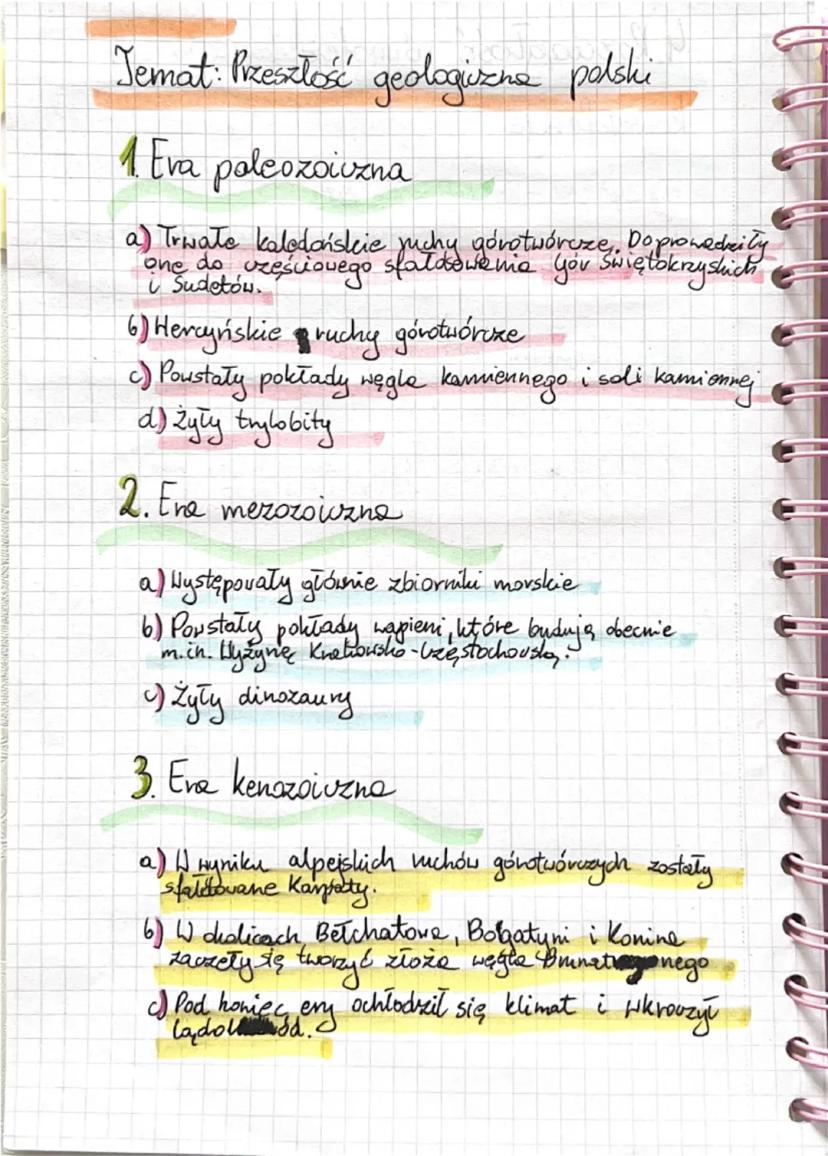 Temat: Przeszłość geologiczna polski
1. Era paleozoiczna
a) Trwałe kaledońskie ruchy górotwórcze. Doprowadziły
one do częściowego sfałdowania Gór Świętokrzyskich
i Sudetów.
b) Hercyńskie ruchy górotwórcze
c) Powstały pokłady węgla kamiennego i soli kamiennej
d) Żyły trylobity
2. Era mezozoiczna
a) Występowały głównie zbiorniki morskie
b) Powstały pokłady wapieni, które budują obecnie
m.in. Wyżynę Krakowsko-Częstochowską.
c) Żyły dinozaury
3. Era kenozoiczna
a) W wyniku alpejskich ruchów górotwórczych zostały
sfałdowane Karpaty.
b) W okolicach Bełchatowa, Bogatyni i Konina
zaczęły się tworzyć złoża węgla Brunatnego
c) Pod koniec ery ochłodził się klimat i wkroczył
lądolód.